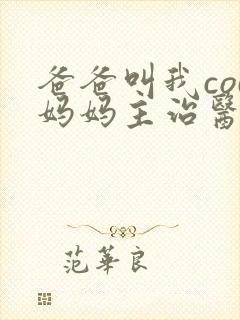 爸爸叫我co
妈妈主治醫
范華良